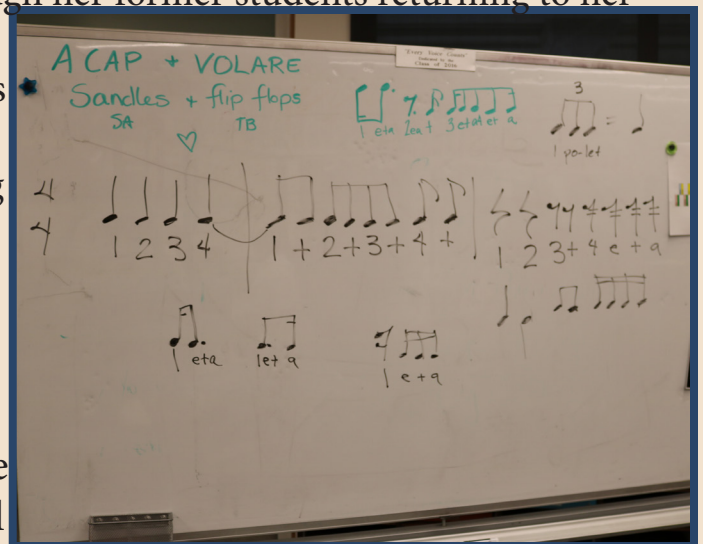 gh her former students returning to her
s
g
e
l
A CAP + VOLARE
Sandles + flip flops
SA TB
"Every Voice Counts"
Class of 2016
1 eta 2ea+ 3etater a
3
=
1 po-let
4
4
1 2 3 4 1 + 2+3+ 4 + 1 2 3+ 4 e + a
1 eta 1et a 1 e + a